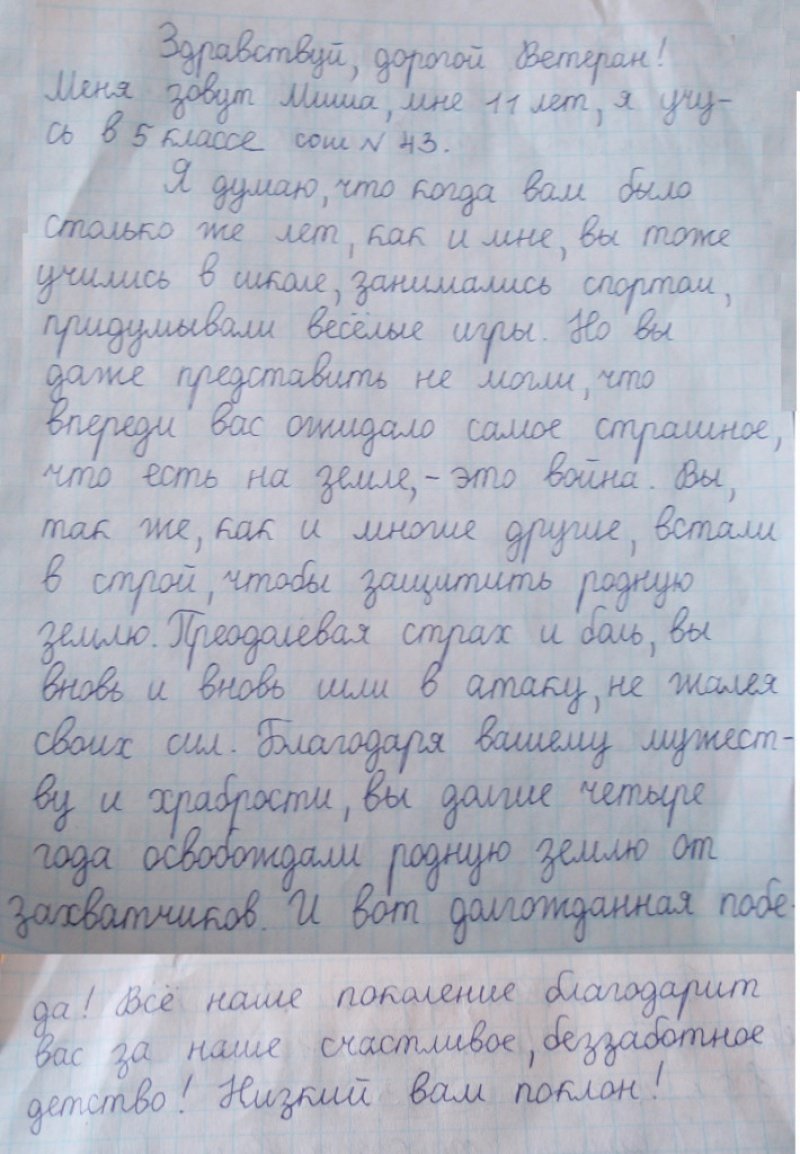 Здравствуй, дорогой Ветеран!
Меня зовут Миша, мне 11 лет, я учу-
сь в 5 классе сош № 43.
Я думаю, что когда вам было
столько же лет, как и мне, вы тоже
учились в школе, занимались спортом,
придумывали весёлые игры. Но вы
даже представить не могли, что
впереди вас ожидало самое страшное,
что есть на земле, - это война. Вы,
так же, как и многие другие, встали
в строй, чтобы защитить родную
землю. Преодолевая страх и боль, вы
вновь и вновь шли в атаку, не жалея
своих сил. Благодаря вашему мужест-
ву и храбрости, вы долгие четыре
года освобождали родную землю от
захватчиков. И вот долгожданная побе-
да! Всё наше поколение благодарит
вас за наше счастливое, беззаботное
детство! Низкий вам поклон!